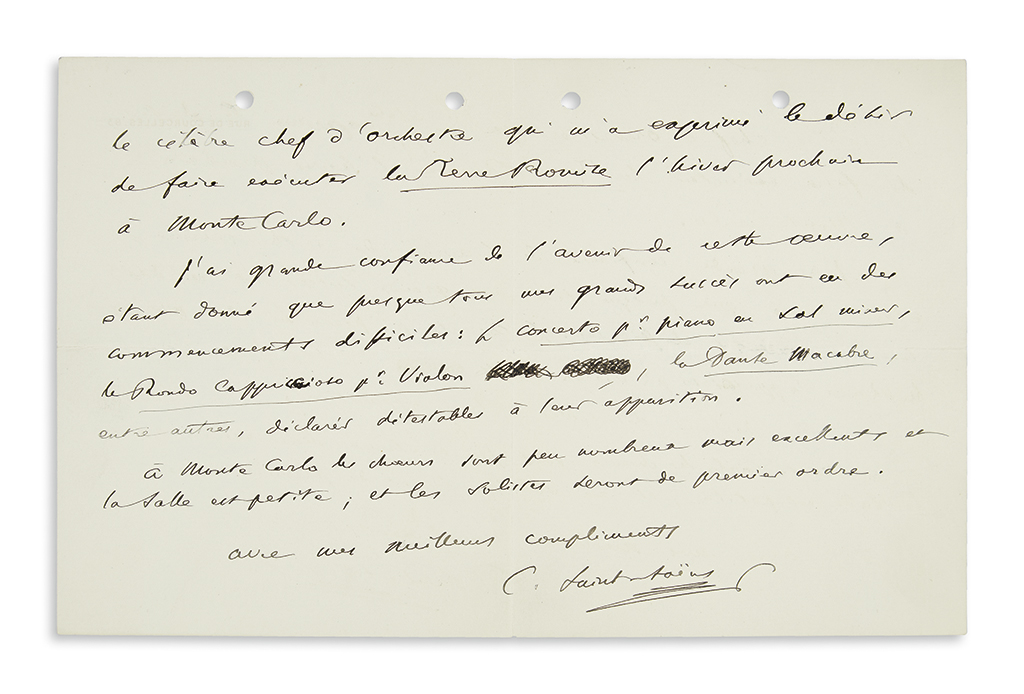 le célèbre chef d'orchestre qui m'a exprimé le désir
de faire exécuter la Terre Promise l'hiver prochain
à Monte Carlo.
J'ai grande confiance de l'avenir de cette œuvre,
étant donné que presque tous mes grands succès ont eu des
commencements difficiles : le concerto pr piano en sol mineur,
le Rondo Cappriccioso pr Violon, la Danse Macabre,
entre autres, déclarés détestables à leur apparition.
à Monte Carlo les chœurs sont peu nombreux mais excellents et
la salle est petite ; et les solistes seront de premier ordre.
avec mes meilleurs compliments
C. Saint-Saëns